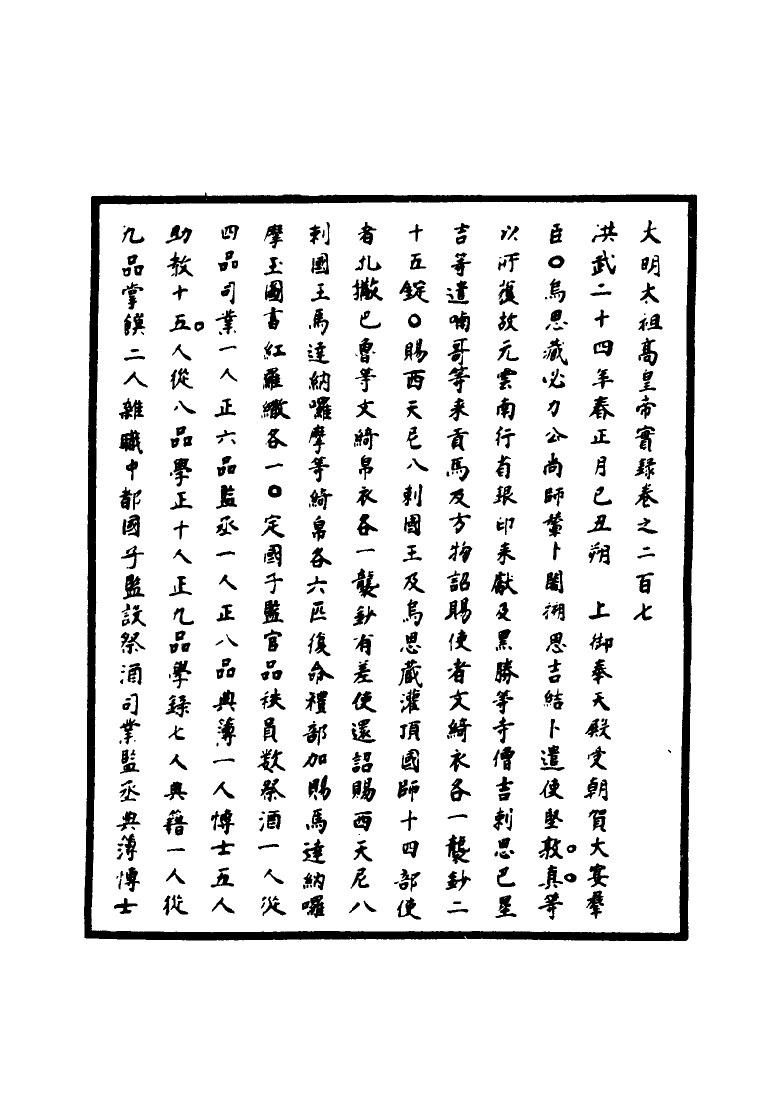 大明太祖高皇帝實錄卷之二百七
洪武二十四年春正月己丑朔　上御奉天殿受朝賀大宴羣
臣○烏思藏必力公尚師輦卜闍搠思吉結卜遣使堅敦真等
以所獲故元雲南行省銀印來獻及黑勝等寺僧吉剌思巴星
吉等遣喃哥等來貢馬及方物詔賜使者文綺衣各一襲鈔二
十五錠○賜西天尼八剌國王及烏思藏灌頂國師十四部使
者扎撒巴魯等文綺帛衣各一襲鈔有差使還詔賜西天尼八
剌國王馬達納囉摩等綺帛各六匹復命禮部加賜馬達納囉
摩玉圖書紅羅繖各一○定國子監官品秩員數祭酒一人從
四品司業一人正六品監丞一人正八品典簿一人博士五人
助教十五人從八品學正十人正九品學錄七人典籍一人從
九品掌饌二人雜職中都國子監設祭酒司業監丞典簿博士